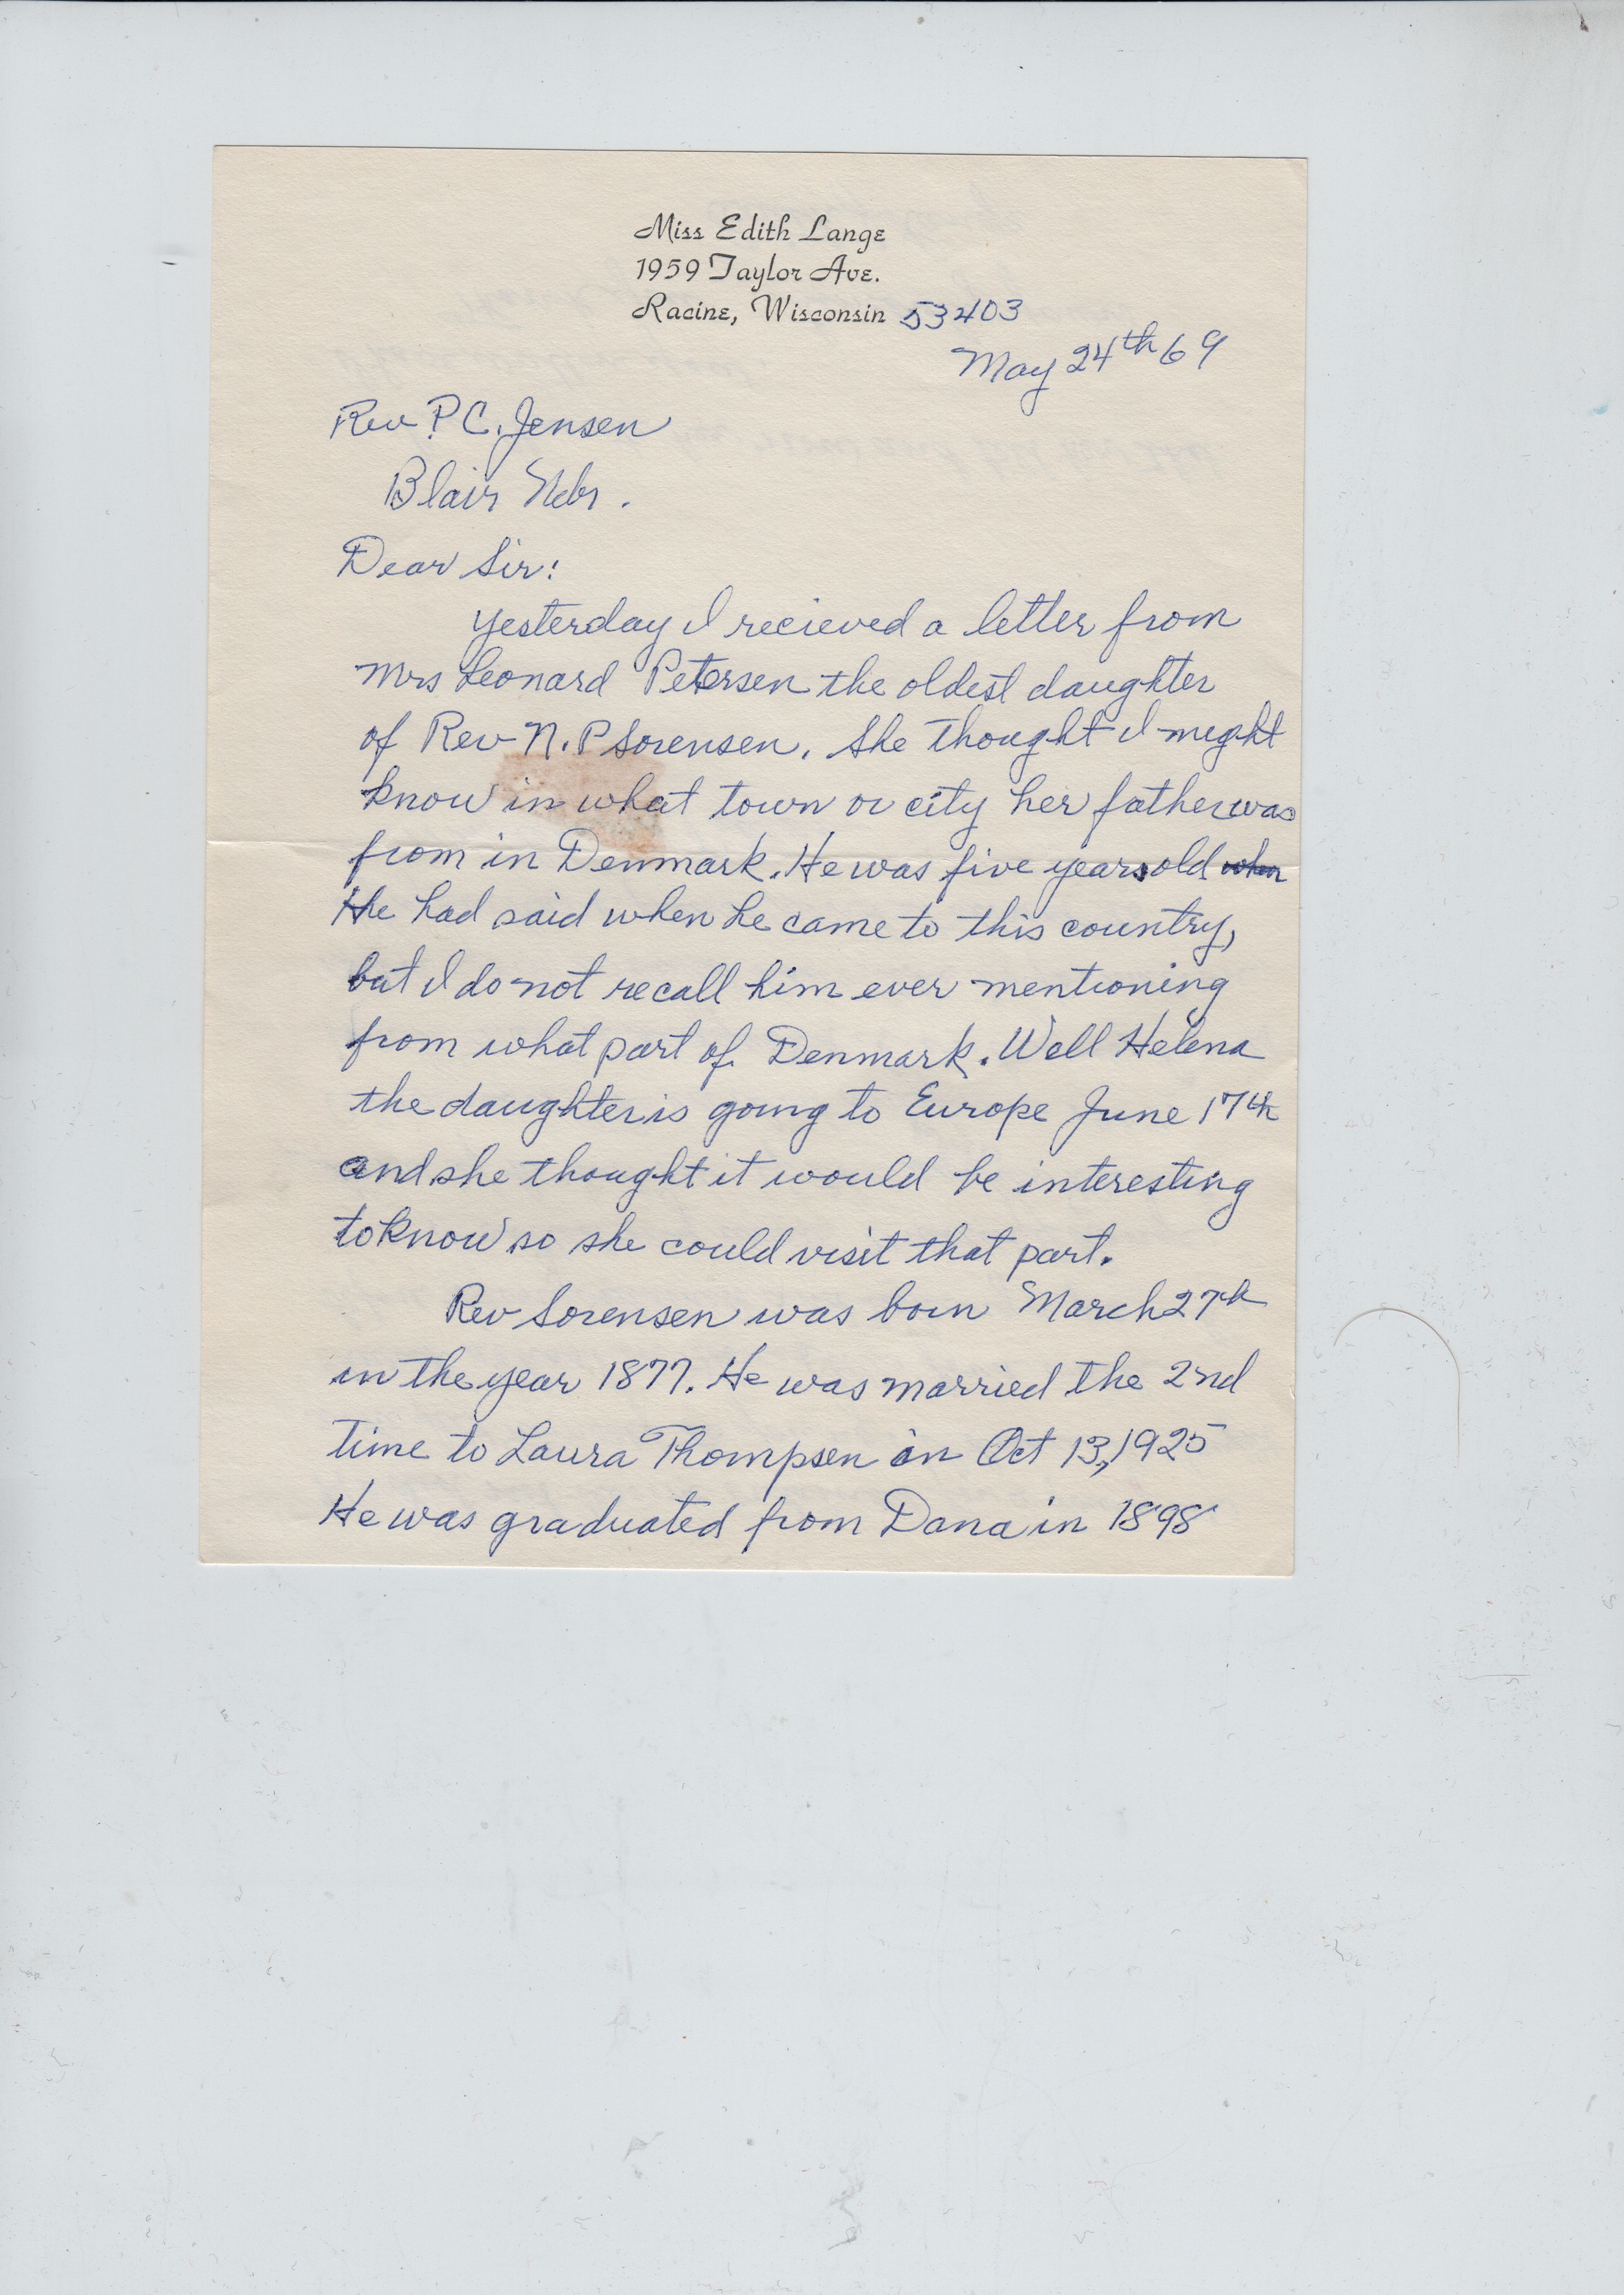 Miss Edith Lange
1959 Taylor Ave.
Racine, Wisconsin 53403
May 24th 69
Rev. P C. Jensen
Blair Nebr.
Dear Sir:
Yesterday I recieved a letter from
Mrs Leonard Petersen the oldest daughter
of Rev N. P Sorensen. She thought I might
know in what town or city her father was
from in Denmark. He was five years old when
He had said when he came to this country,
but I do not recall him ever mentioning
from what part of Denmark. Well Helena
the daughter is going to Europe June 17th
and she thought it would be interesting
to know so she could visit that part.
Rev Sorensen was born March 27th
in the year 1877. He was married the 2nd
time to Laura Thompsen on Oct 13, 1925
He was graduated from Dana in 1898